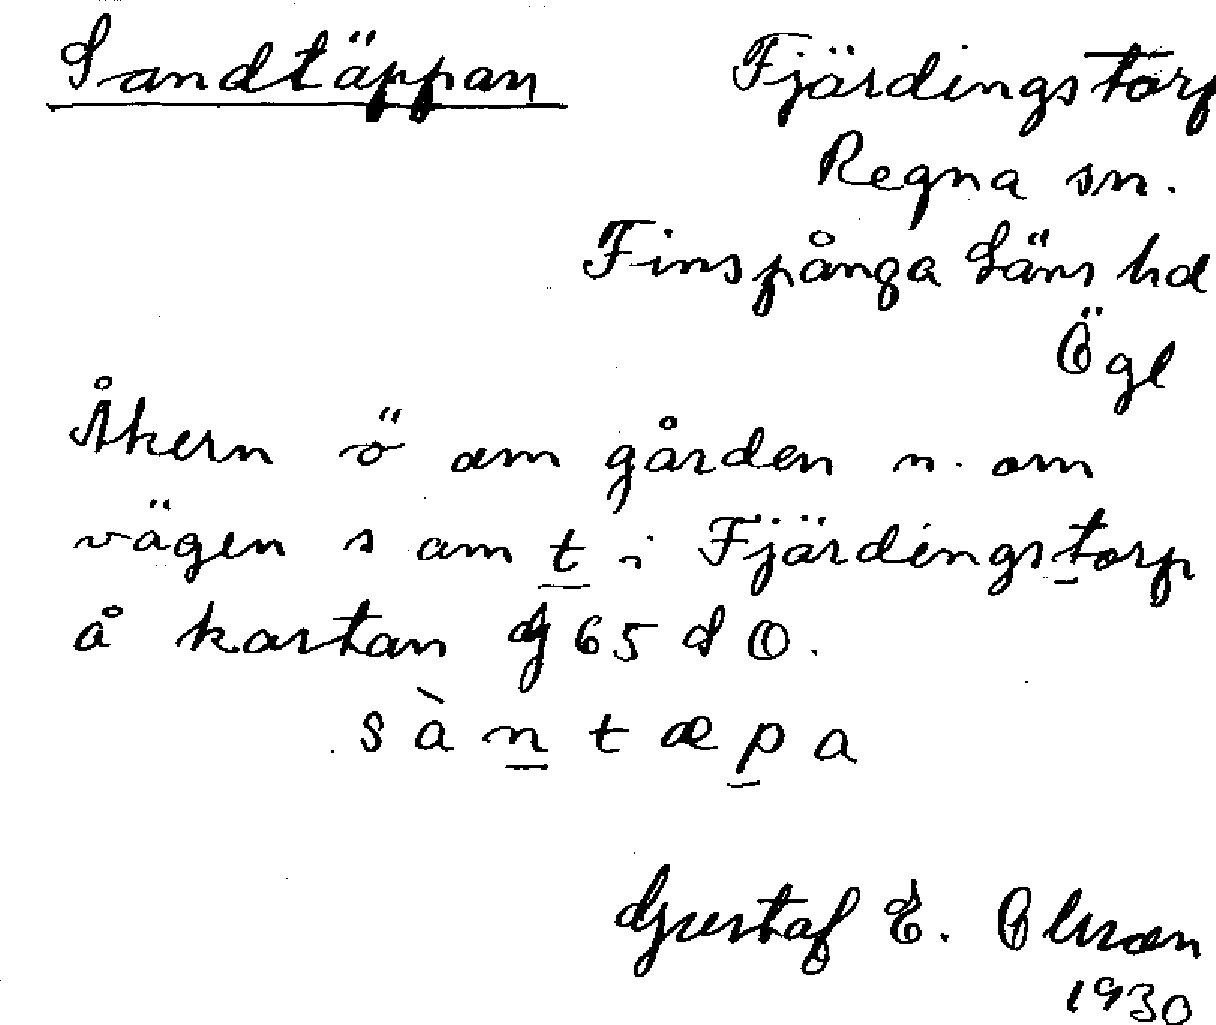 Sandtäppan
Fjärdingstorp
Regna sn.
Finspånga Läns hd
Ögl
Åkern ö om gården n. om
vägen s om t i Fjärdingstorp
å kartan G 65 d O.
sàntæpa
Gustaf E. Olsson
1930